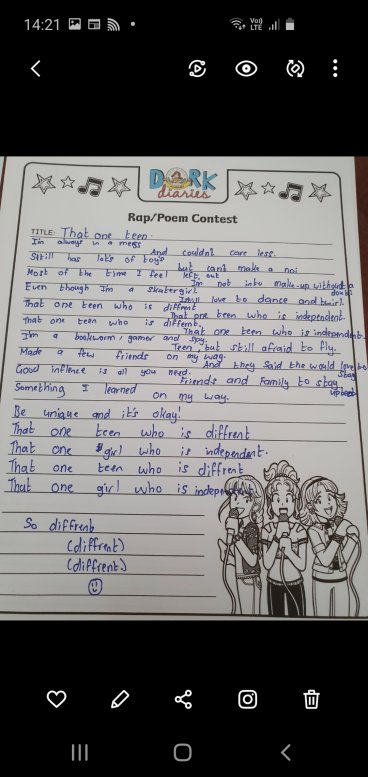 14:21
Vo))
LTE
DORK
diaries
Rap/Poem Contest
TITLE: That one teen.
Im always in a mess
And couldnt care less.
Still has lots of toys
but cant make a noi
Most of the time I feel left out
Im not into make-up without a
doubt
Even though Im a skatergirl.
I still love to dance and twirl.
That one teen who is diffrent
That one teen who is independent.
That one teen who is diffrent.
That one teen who is independent.
I'm a bookworm, gamer and spy.
Teen, but still afraid to fly.
Made a few friends on my way.
And they said the would love to
stay
Good inflence is all you need.
Friends and family to stay
upbeat
Something I learned on my way.
Be unique and it's okay!
That one teen who is diffrent
That one girl who is independent.
That one teen who is diffrent
That one girl who is independent
So diffrent
(diffrent)
(diffrent)